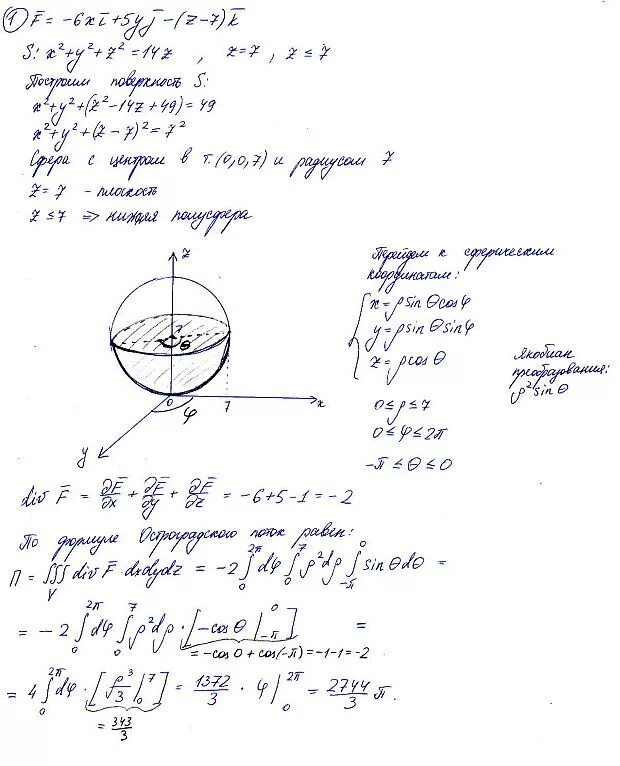 ① F̄ = -6x ī + 5y j̄ - (z-7) k̄
S: x² + y² + z² = 14z , z = 7 , z ≤ 7
Построим поверхность S:
x² + y² + (z² - 14z + 49) = 49
x² + y² + (z - 7)² = 7²
Сфера с центром в т. (0,0,7) и радиусом 7
z = 7 - плоскость
z ≤ 7 => нижняя полусфера
z
7
θ
0
φ
7
x
y
Перейдем к сферическим
координатам:
x = ρ sin θ cos φ
y = ρ sin θ sin φ
z = ρ cos θ
0 ≤ ρ ≤ 7
0 ≤ φ ≤ 2π
-π ≤ θ ≤ 0
Якобиан
преобразования:
ρ² sin θ
div F̄ = ∂F̄/∂x + ∂F̄/∂y + ∂F̄/∂z = -6 + 5 - 1 = -2
По формуле Остроградского поток равен:
П = ∭_V div F̄ dxdydz = -2 ∫₀^{2π} dφ ∫₀^7 ρ² dρ ∫_{-π}^0 sin θ dθ =
= -2 ∫₀^{2π} dφ ∫₀^7 ρ² dρ · [-cos θ |_{-π}^0] =
= -cos 0 + cos(-π) = -1 - 1 = -2
= 4 ∫₀^{2π} dφ · [ρ³/3 |₀^7] = 1372/3 · φ |₀^{2π} = 2744/3 π.
= 343/3